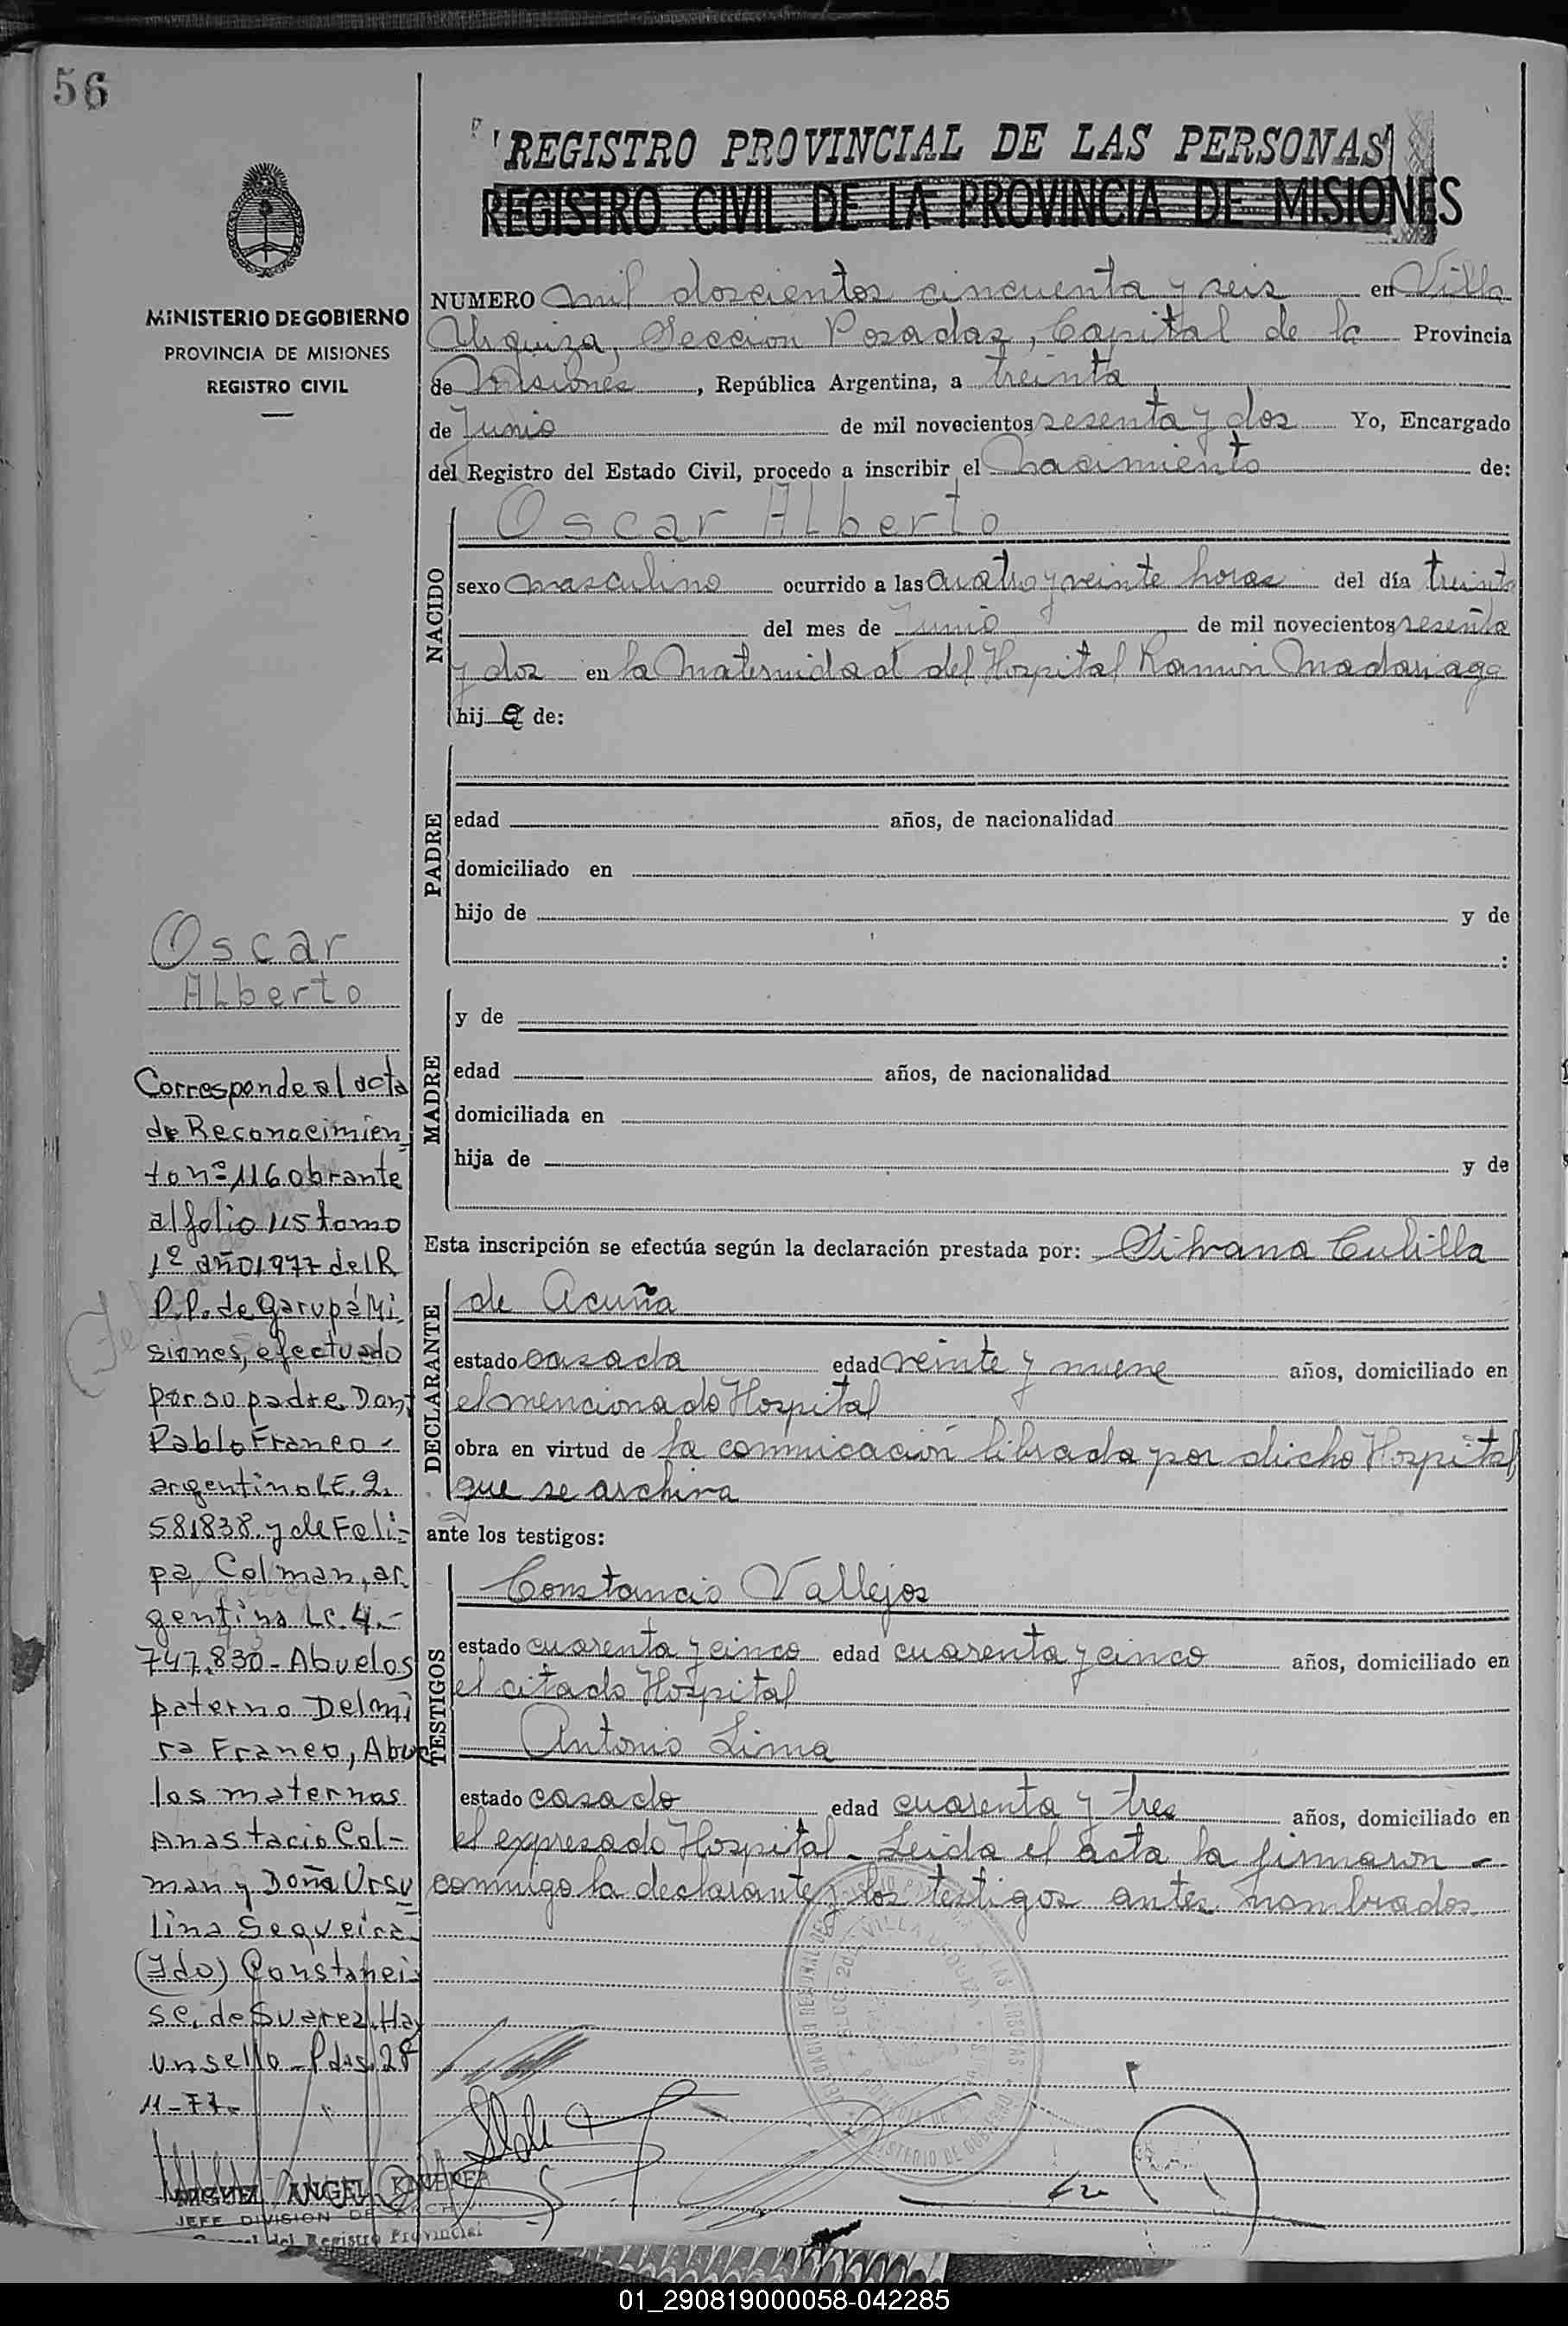 56
REGISTRO PROVINCIAL DE LAS PERSONAS
REGISTRO CIVIL DE LA PROVINCIA DE MISIONES
MINISTERIO DE GOBIERNO
PROVINCIA DE MISIONES
REGISTRO CIVIL
NUMERO mil doscientos cincuenta y seis en Villa
Urquiza, Seccion Posadas, Capital de la Provincia
de Misiones, República Argentina, a treinta
de Junio de mil novecientos sesenta y dos Yo, Encargado
del Registro del Estado Civil, procedo a inscribir el nacimiento de:
NACIDO
Oscar Alberto
sexo masculino ocurrido a las cuatro y veinte horas del día treinta
del mes de Junio de mil novecientos sesenta
y dos en la Maternidad del Hospital Ramon Madariaga
hijo de:
PADRE
edad años, de nacionalidad
domiciliado en
hijo de y de
:
MADRE
y de
edad años, de nacionalidad
domiciliada en
hija de y de
Esta inscripción se efectúa según la declaración prestada por: Silvana Cubilla
DECLARANTE
de Acuña
estado casada edad veinte y nueve años, domiciliado en
el mencionado Hospital
obra en virtud de la comunicación librada por dicho Hospital
que se archiva
ante los testigos:
TESTIGOS
Constancio Vallejos
estado cuarenta y cinco edad cuarenta y cinco años, domiciliado en
el citado Hospital
Antonio Lima
estado casado edad cuarenta y tres años, domiciliado en
el expresado Hospital - Leida el acta la firmaron -
conmigo la declarante y los testigos antes nombrados
Oscar
Alberto
Corresponde al acta
de Reconocimien
to nº 116 obrante
al folio 115 tomo
1º año 1977 del R
P.P. de Garupá Mi
siones, efectuado
por su padre Don
Pablo Franco -
argentino LE. 2.
581838 y de Feli-
pa Colman, ar
gentina Lc. 4.-
747.830 - Abuelos
paterno Delmi
ra Franco, Abue
los maternos
Anastacio Col-
man y Doña Ursu
lina Sequeira
(Fdo) Constanci
sc. de Suarez. Hay
un sello - Pdas. 28
11-77-
MIGUEL ANGEL
JEFE DIVISION DE
del Registro Provincial
VILLA URQUIZA
MINISTERIO DE GOBIERNO
01_290819000058-042285